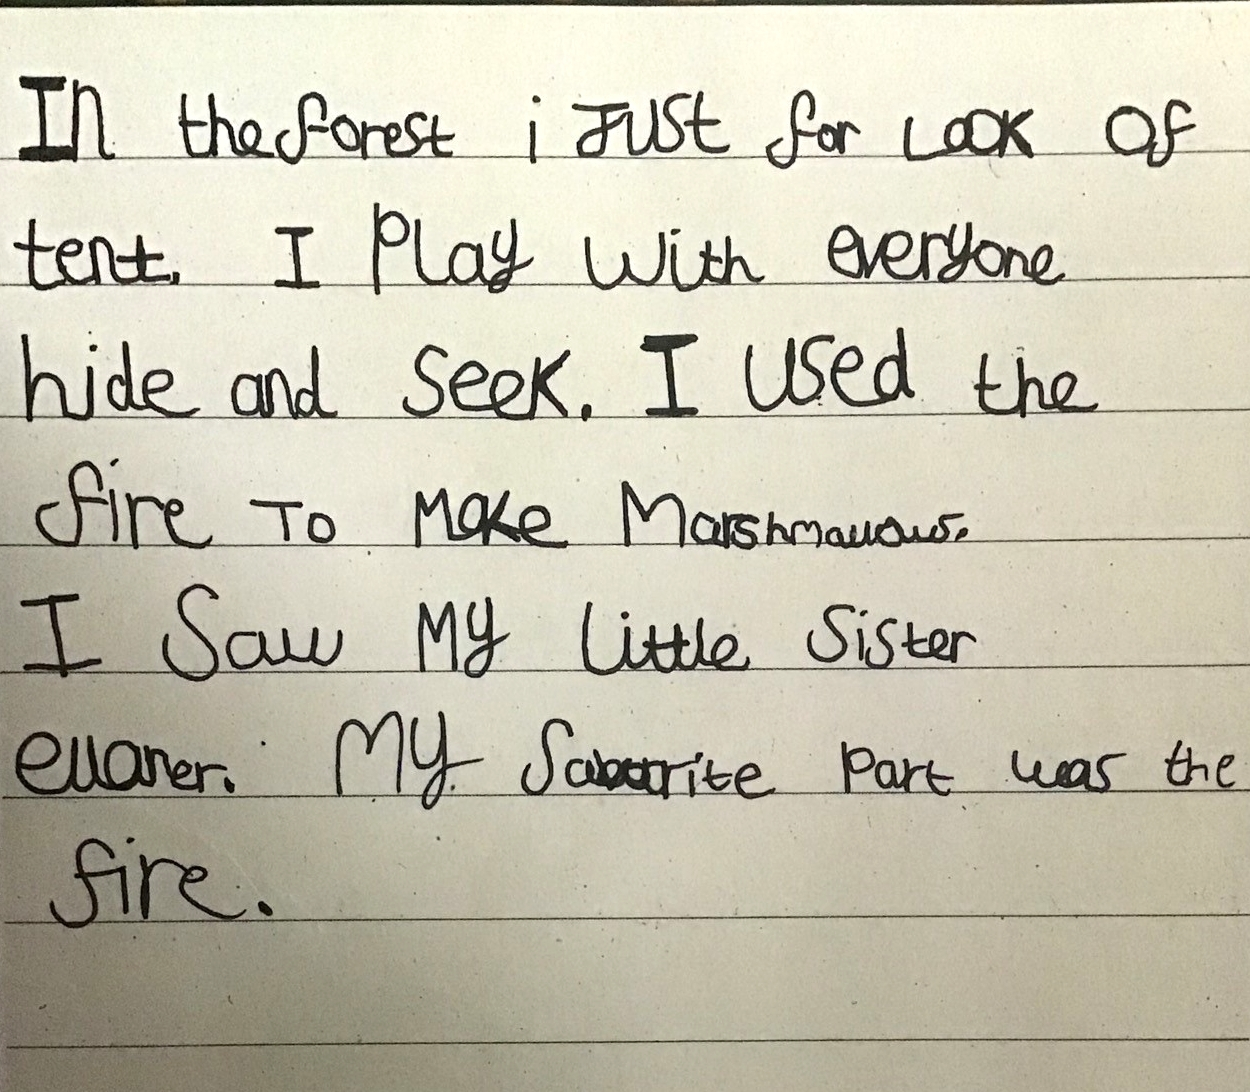 In the forest i JUSt for LOOK Of
tent. I Play with everyone
hide and Seek. I used the
fire To Make Marshmallows.
I Saw My little Sister
ellaner. My favourite Part was the
fire.